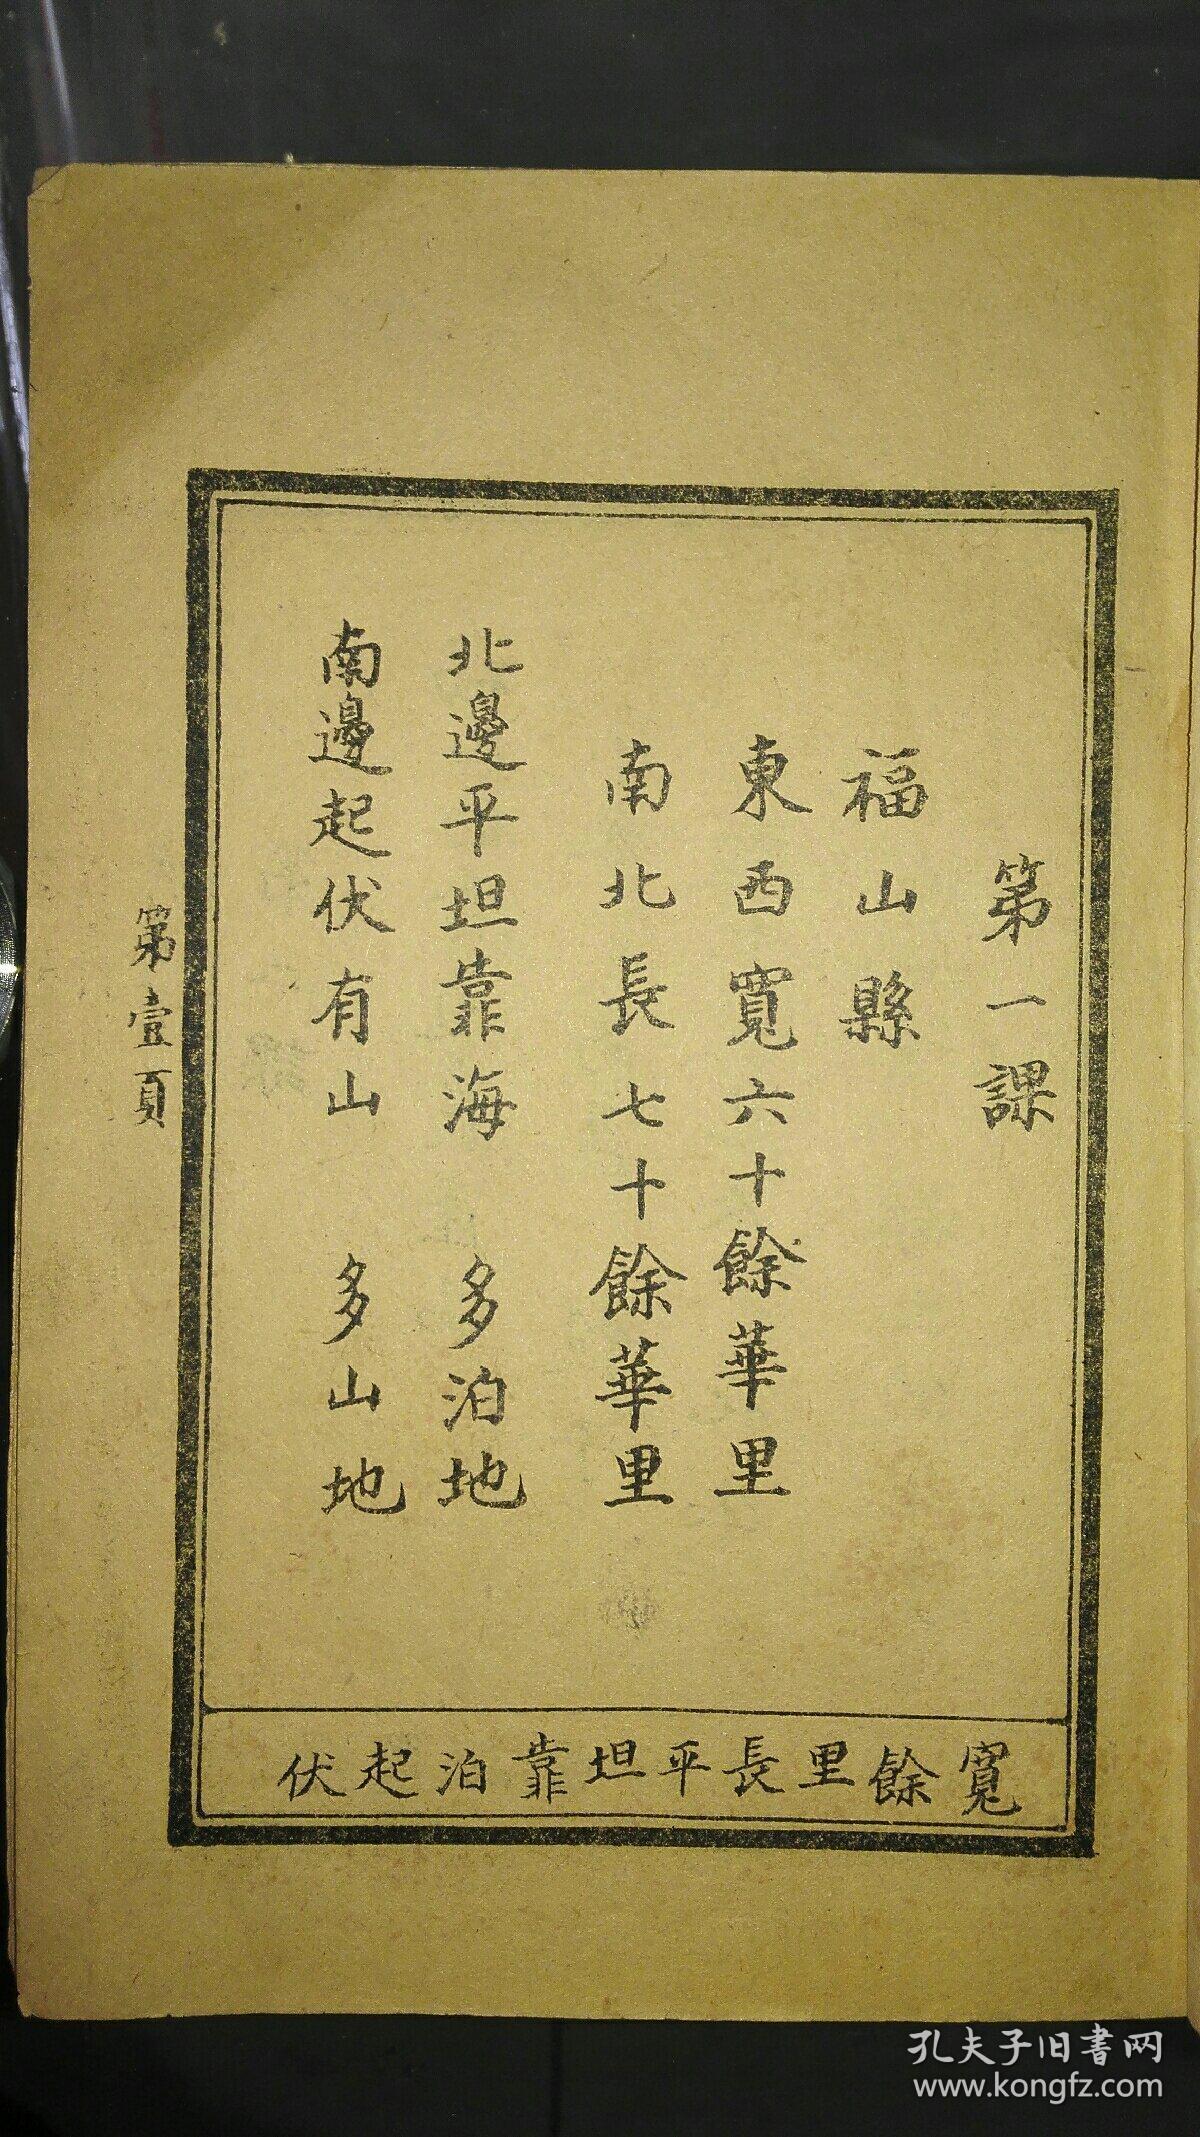 第一課
福山縣
東西寬六十餘華里
南北長七十餘華里
北邊平坦靠海　多泊地
南邊起伏有山　多山地
寬餘里長平坦靠泊起伏
第壹頁
孔夫子旧書网
www.kongfz.com